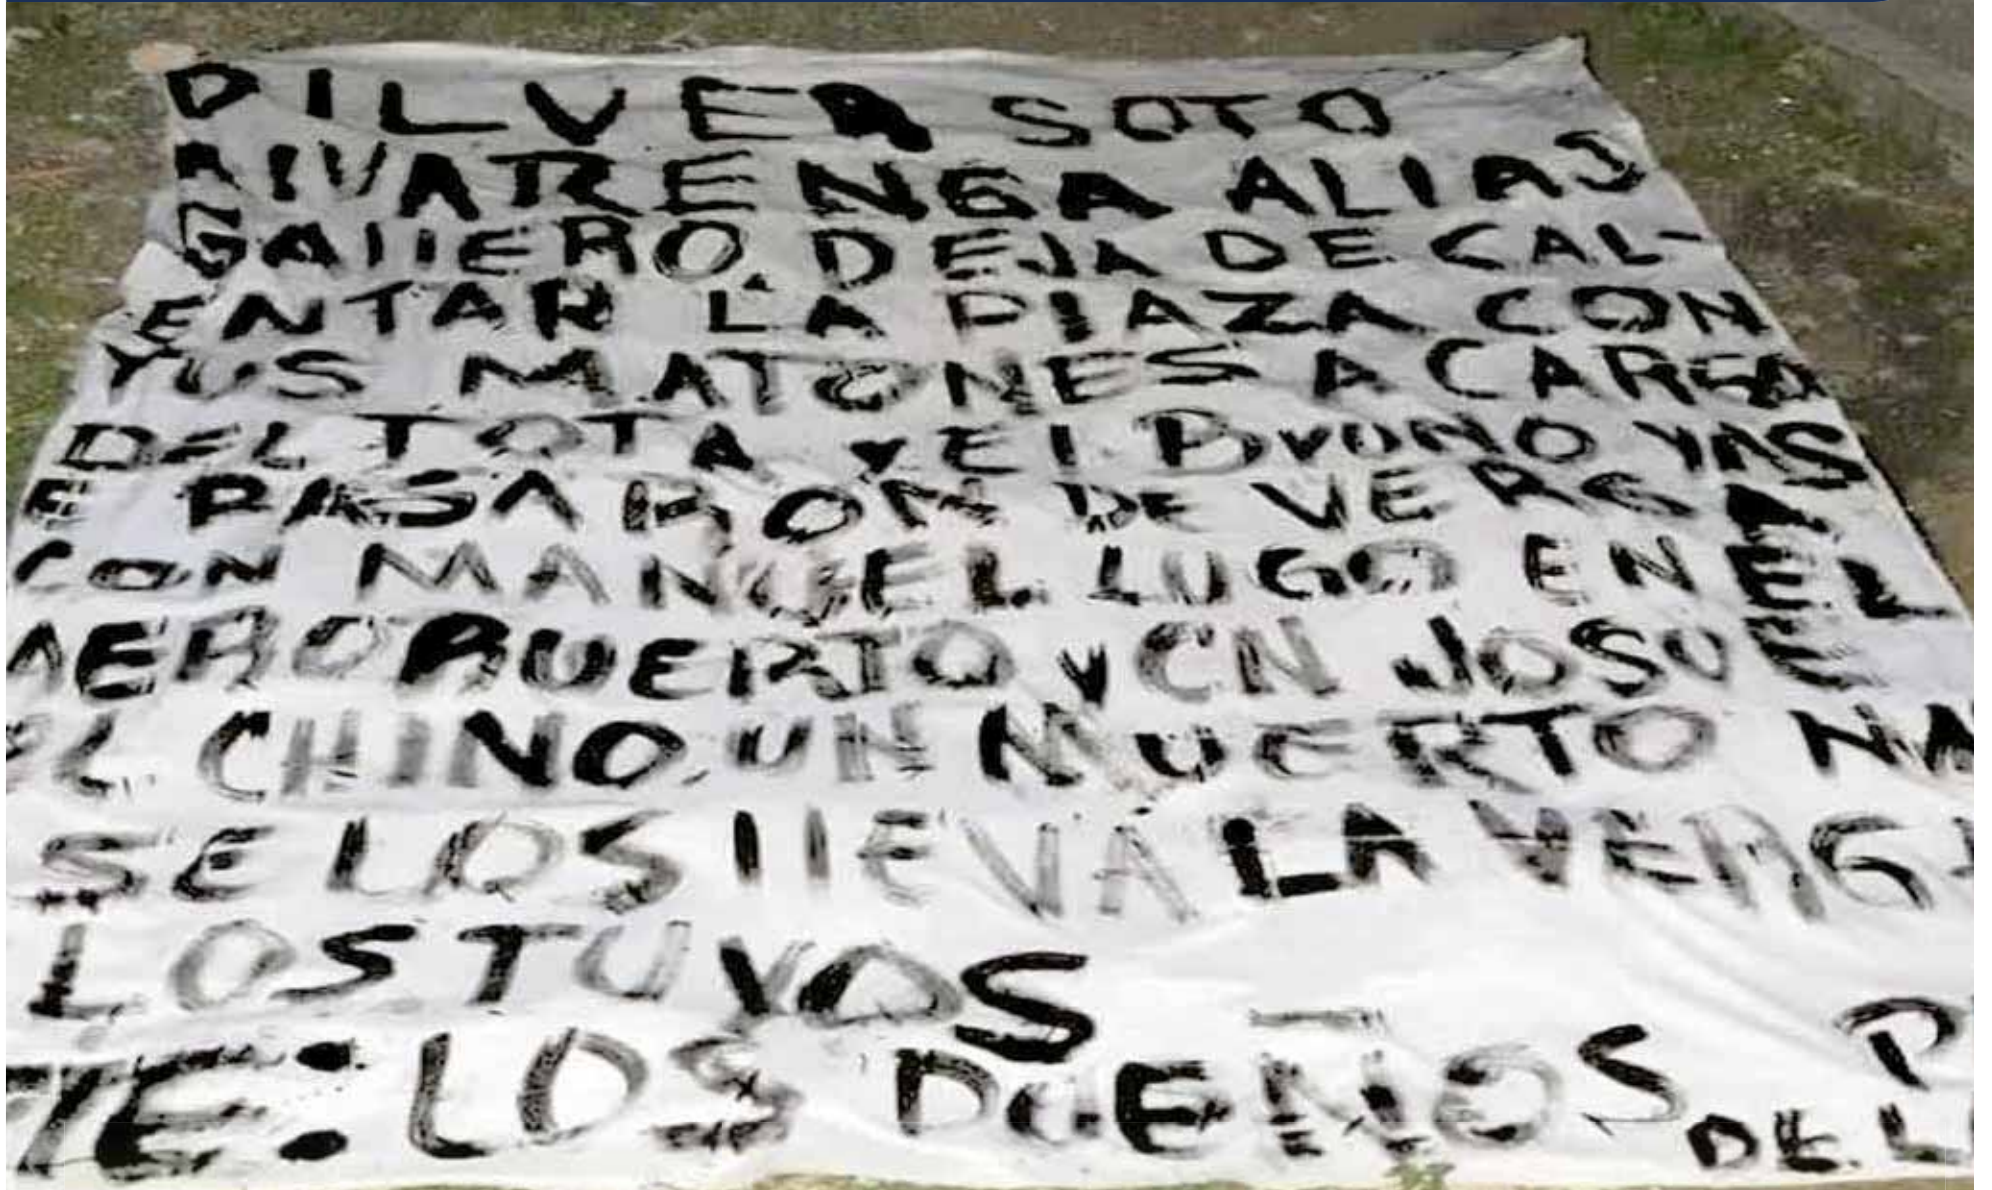 DILVER SOTO
RIVARENGA ALIAS
GAllERO, DEJA DE CAL-
ENTAR LA PlAZA CON
YUS MATONES A CARGO
DEL TOTA Y El YAS
E PASARON DE VERGA
CON MANUEL LUGO EN EL
AEROPUERTO Y CN JOSUE
EL CHINO, UN MUERTO
SE LOS llEVA LA
LOS TUYOS
TE: LOS DUEÑOS
DE